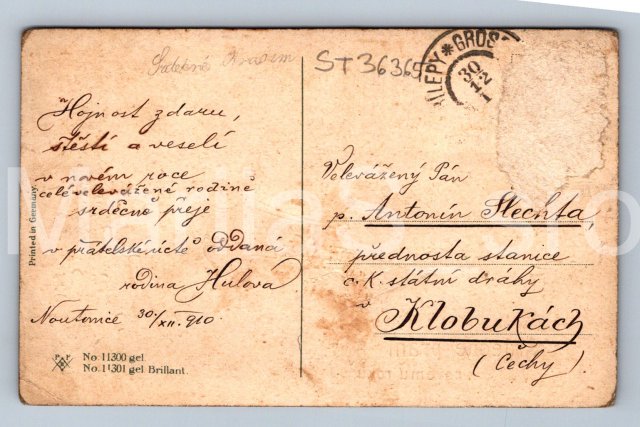 ST36365
ÍLEPY * GROSS
30
12
1
Hojnost zdaru,
štěstí a veselí
v novém roce
celé velevážené rodině
srdečně přeje
v přátelské úctě oddaná
rodina Hulova
Noutonice 30/XII. 910.
Velevážený Pán
p. Antonín Šlechta,
přednosta stanice
c. K. státní dráhy
v
Klobukách
(Čechy)
Printed in Germany
No. 11300 gel
No. 11301 gel Brillant.